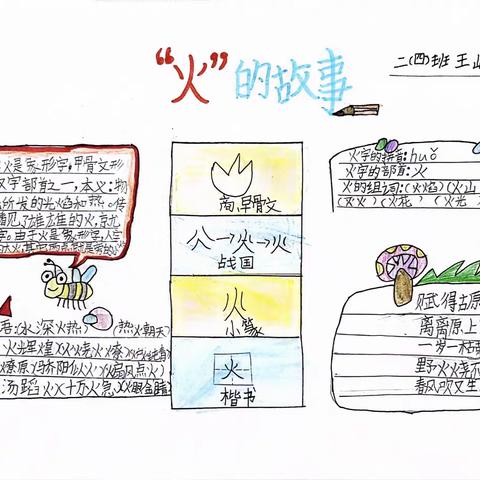 “火”的故事
二(四)班 王
火是象形字,甲骨文形
汉字部首之一,本义:物
所发的光焰和热。传
看见了雄雄的火,就
字。由于火是象形字,人
商,甲骨文
战国
火
小篆
火
楷书
火字的拼音:huǒ
火字的部首:火
火的组词:(火焰)(火山
(火火)(火花)(火光
(水深火热)(热火朝天)
火火辉煌)(火烧火燎)
燎原)(骄阳似火)(煽风点火)
汤蹈火)(十万火急)(火眼金睛)
赋得古原
离离原上
一岁一枯
野火烧不
春风吹又生